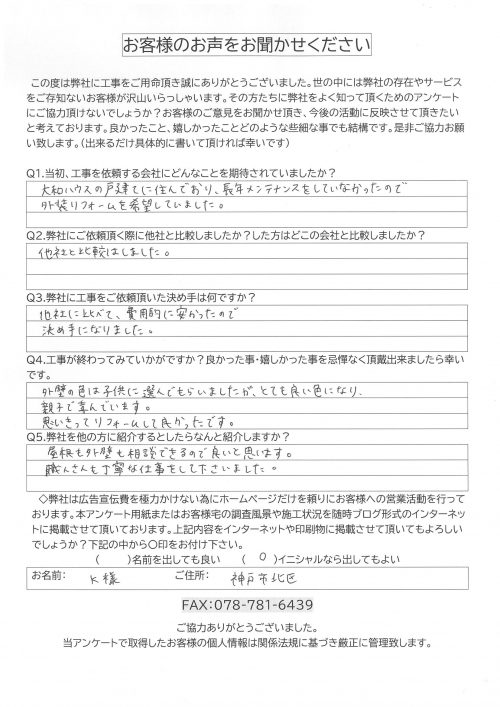 お客様のお声をお聞かせください
この度は弊社に工事をご用命頂き誠にありがとうございました。世の中には弊社の存在やサービス
をご存知ないお客様が沢山いらっしゃいます。その方たちに弊社をよく知って頂くためのアンケート
にご協力頂けないでしょうか？お客様のご意見をお聞かせ頂き、今後の活動に反映させて頂きたい
と考えております。良かったこと、嬉しかったことどのような些細な事でも結構です。是非ご協力お願
い致します。（出来るだけ具体的に書いて頂ければ幸いです）
Q1.当初、工事を依頼する会社にどんなことを期待されていましたか？
大和ハウスの戸建てに住んでおり、長年メンテナンスをしていなかったので
外装リフォームを希望していました。
Q2.弊社にご依頼頂く際に他社と比較しましたか？した方はどこの会社と比較しましたか？
他社と比較はしました。
Q3.弊社に工事をご依頼頂いた決め手は何ですか？
他社に比べて、費用的に安かったので
決め手になりました。
Q4.工事が終わってみていかがですか？良かった事・嬉しかった事を忌憚なく頂戴出来ましたら幸い
です。
外壁の色は子供に選んでもらいましたが、とても良い色になり、
親子で喜んでいます。
思いきってリフォームして良かったです。
Q5.弊社を他の方に紹介するとしたらなんと紹介しますか？
屋根も外壁も相談できるので良いと思います。
職人さんも丁寧な仕事をして下さいました。
◇弊社は広告宣伝費を極力かけない為にホームページだけを頼りにお客様への営業活動を行って
おります。本アンケート用紙またはお客様宅の調査風景や施工状況を随時ブログ形式のインターネッ
トに掲載させて頂いております。上記内容をインターネットや印刷物に掲載させて頂いてもよろしい
でしょうか？下記の中から〇印をお付け下さい。
（　　）名前を出しても良い　（　○　）イニシャルなら出してもよい
お名前：　K様　ご住所：　神戸市北区
FAX:078-781-6439
ご協力ありがとうございました。
当アンケートで取得したお客様の個人情報は関係法規に基づき厳正に管理致します。